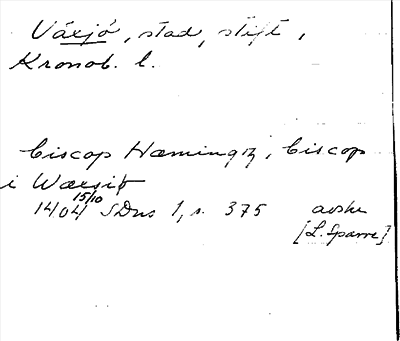 Växjö, stad, stift,
Kronob. l.
biscop Hæmingx, biscop
i Wæxiø
1404 15/10 SDns 1, s. 375 avskr
[L. Sparre]